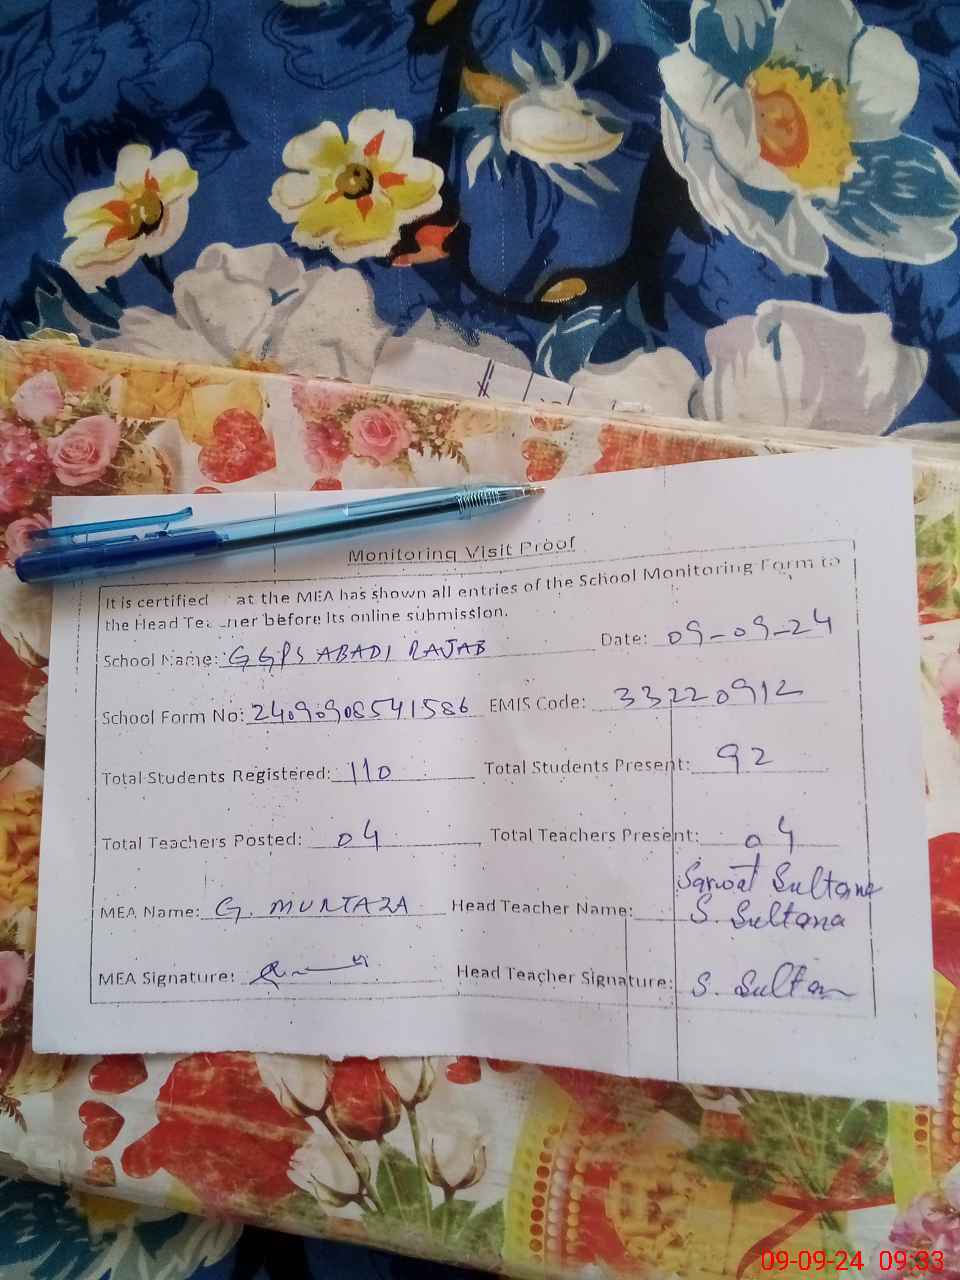 Monitoring Visit Proof
It is certified at the MEA has shown all entries of the School Monitoring Form to
the Head Teacher before its online submission.
School Name: GGPS ABADI RAJAB Date: 09-09-24
School Form No: 24090908541586 EMIS Code: 33220912
Total Students Registered: 110 Total Students Present: 92
Total Teachers Posted: 04 Total Teachers Present: 04
Sarwat Sultana
MEA Name: G. MURTAZA Head Teacher Name: S. Sultana
MEA Signature: Head Teacher Signature: S. Sultan
09-09-24 09:33